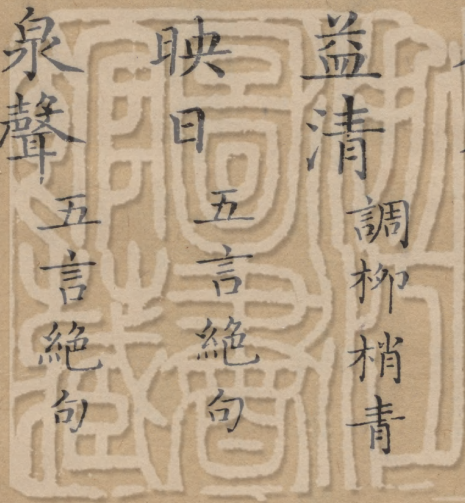 益清 調柳梢青
映日 五言絶句
泉聲 五言絶句